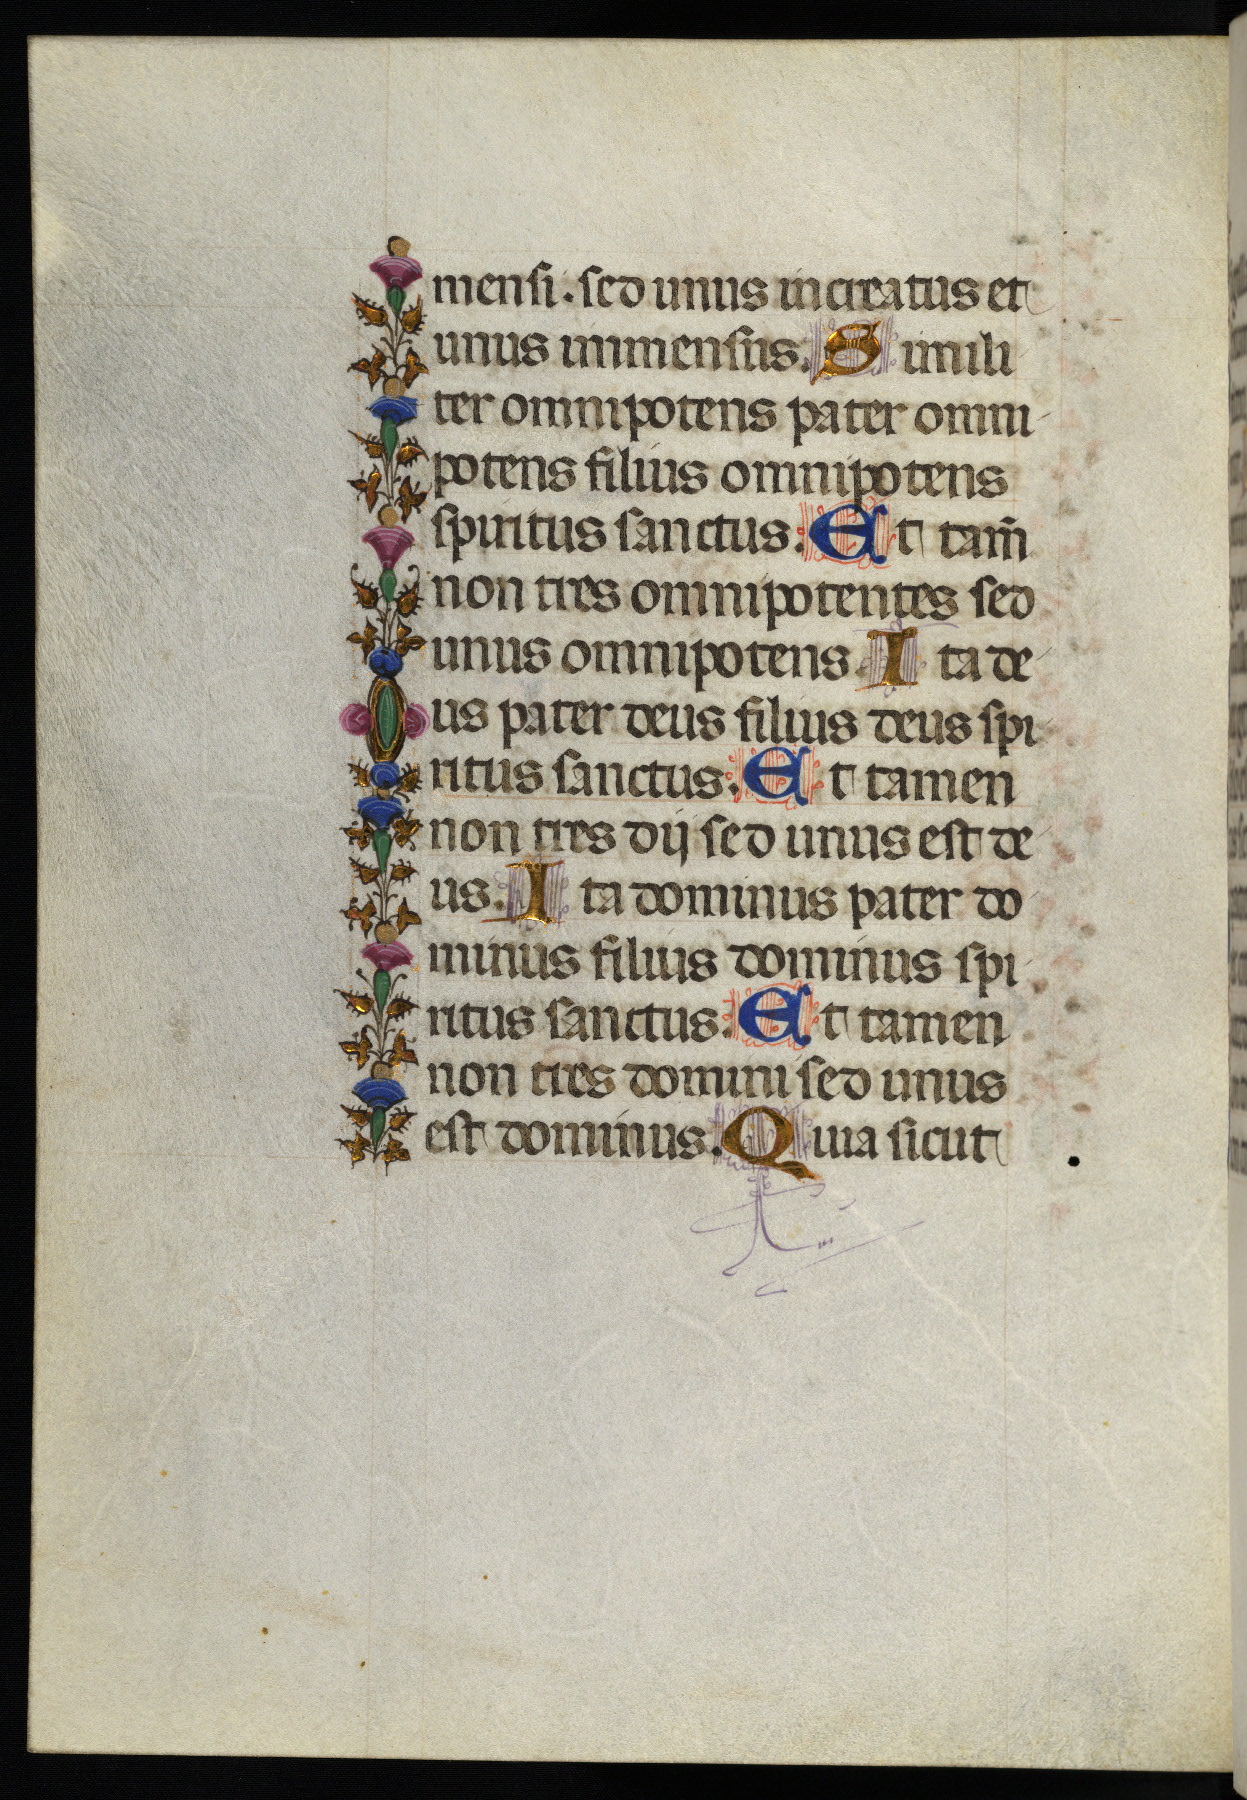 mensi. sed unus increatus et
unus immensus. Simili
ter omnipotens pater omni
potens filius omnipotens
spiritus sanctus. Et tam̄
non tres omnipotentes sed
unus omnipotens. Ita de
us pater deus filius deus spi
ritus sanctus. Et tamen
non tres dij sed unus est de
us. Ita dominus pater do
minus filius dominus spi
ritus sanctus. Et tamen
non tres domini sed unus
est dominus. Quia sicut